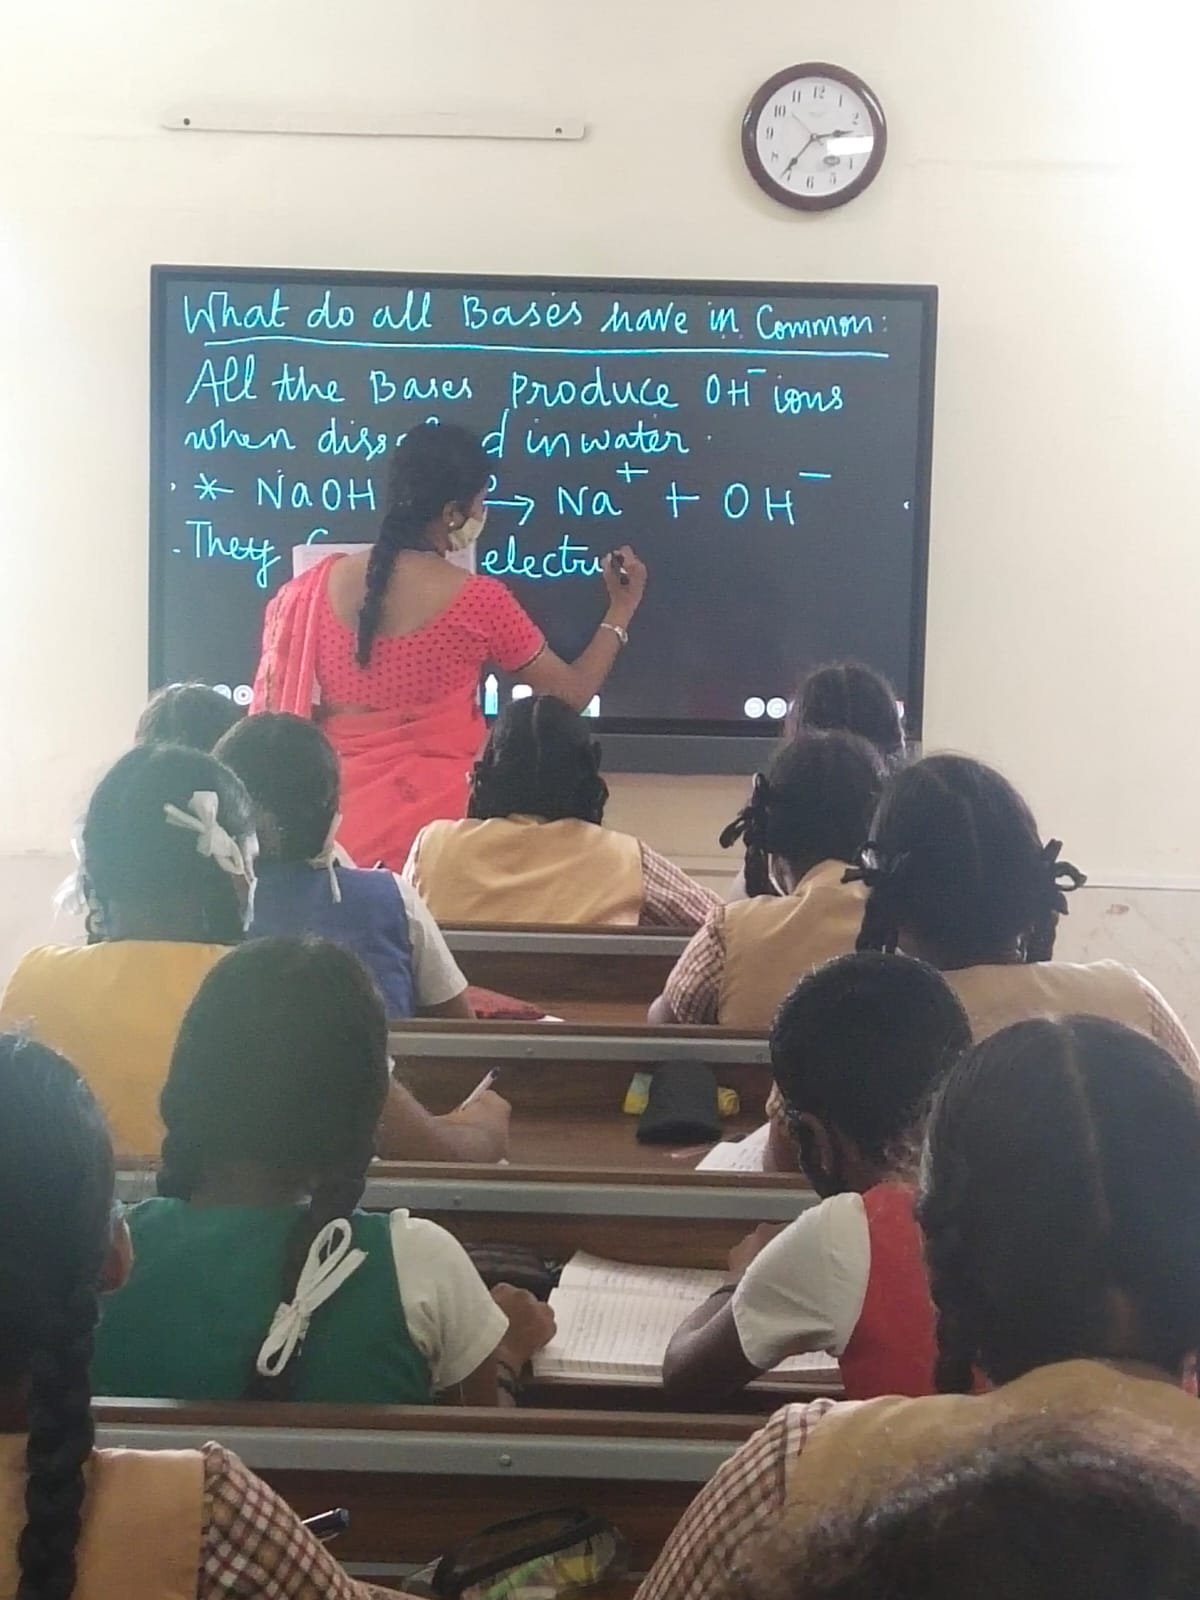 What do all Bases have in Common:
All the Bases produce OH⁻ ions
when diss d in water.
* NaOH → Na⁺ + OH⁻
. They electri
11 12 1
10 2
9
8
7 6 5